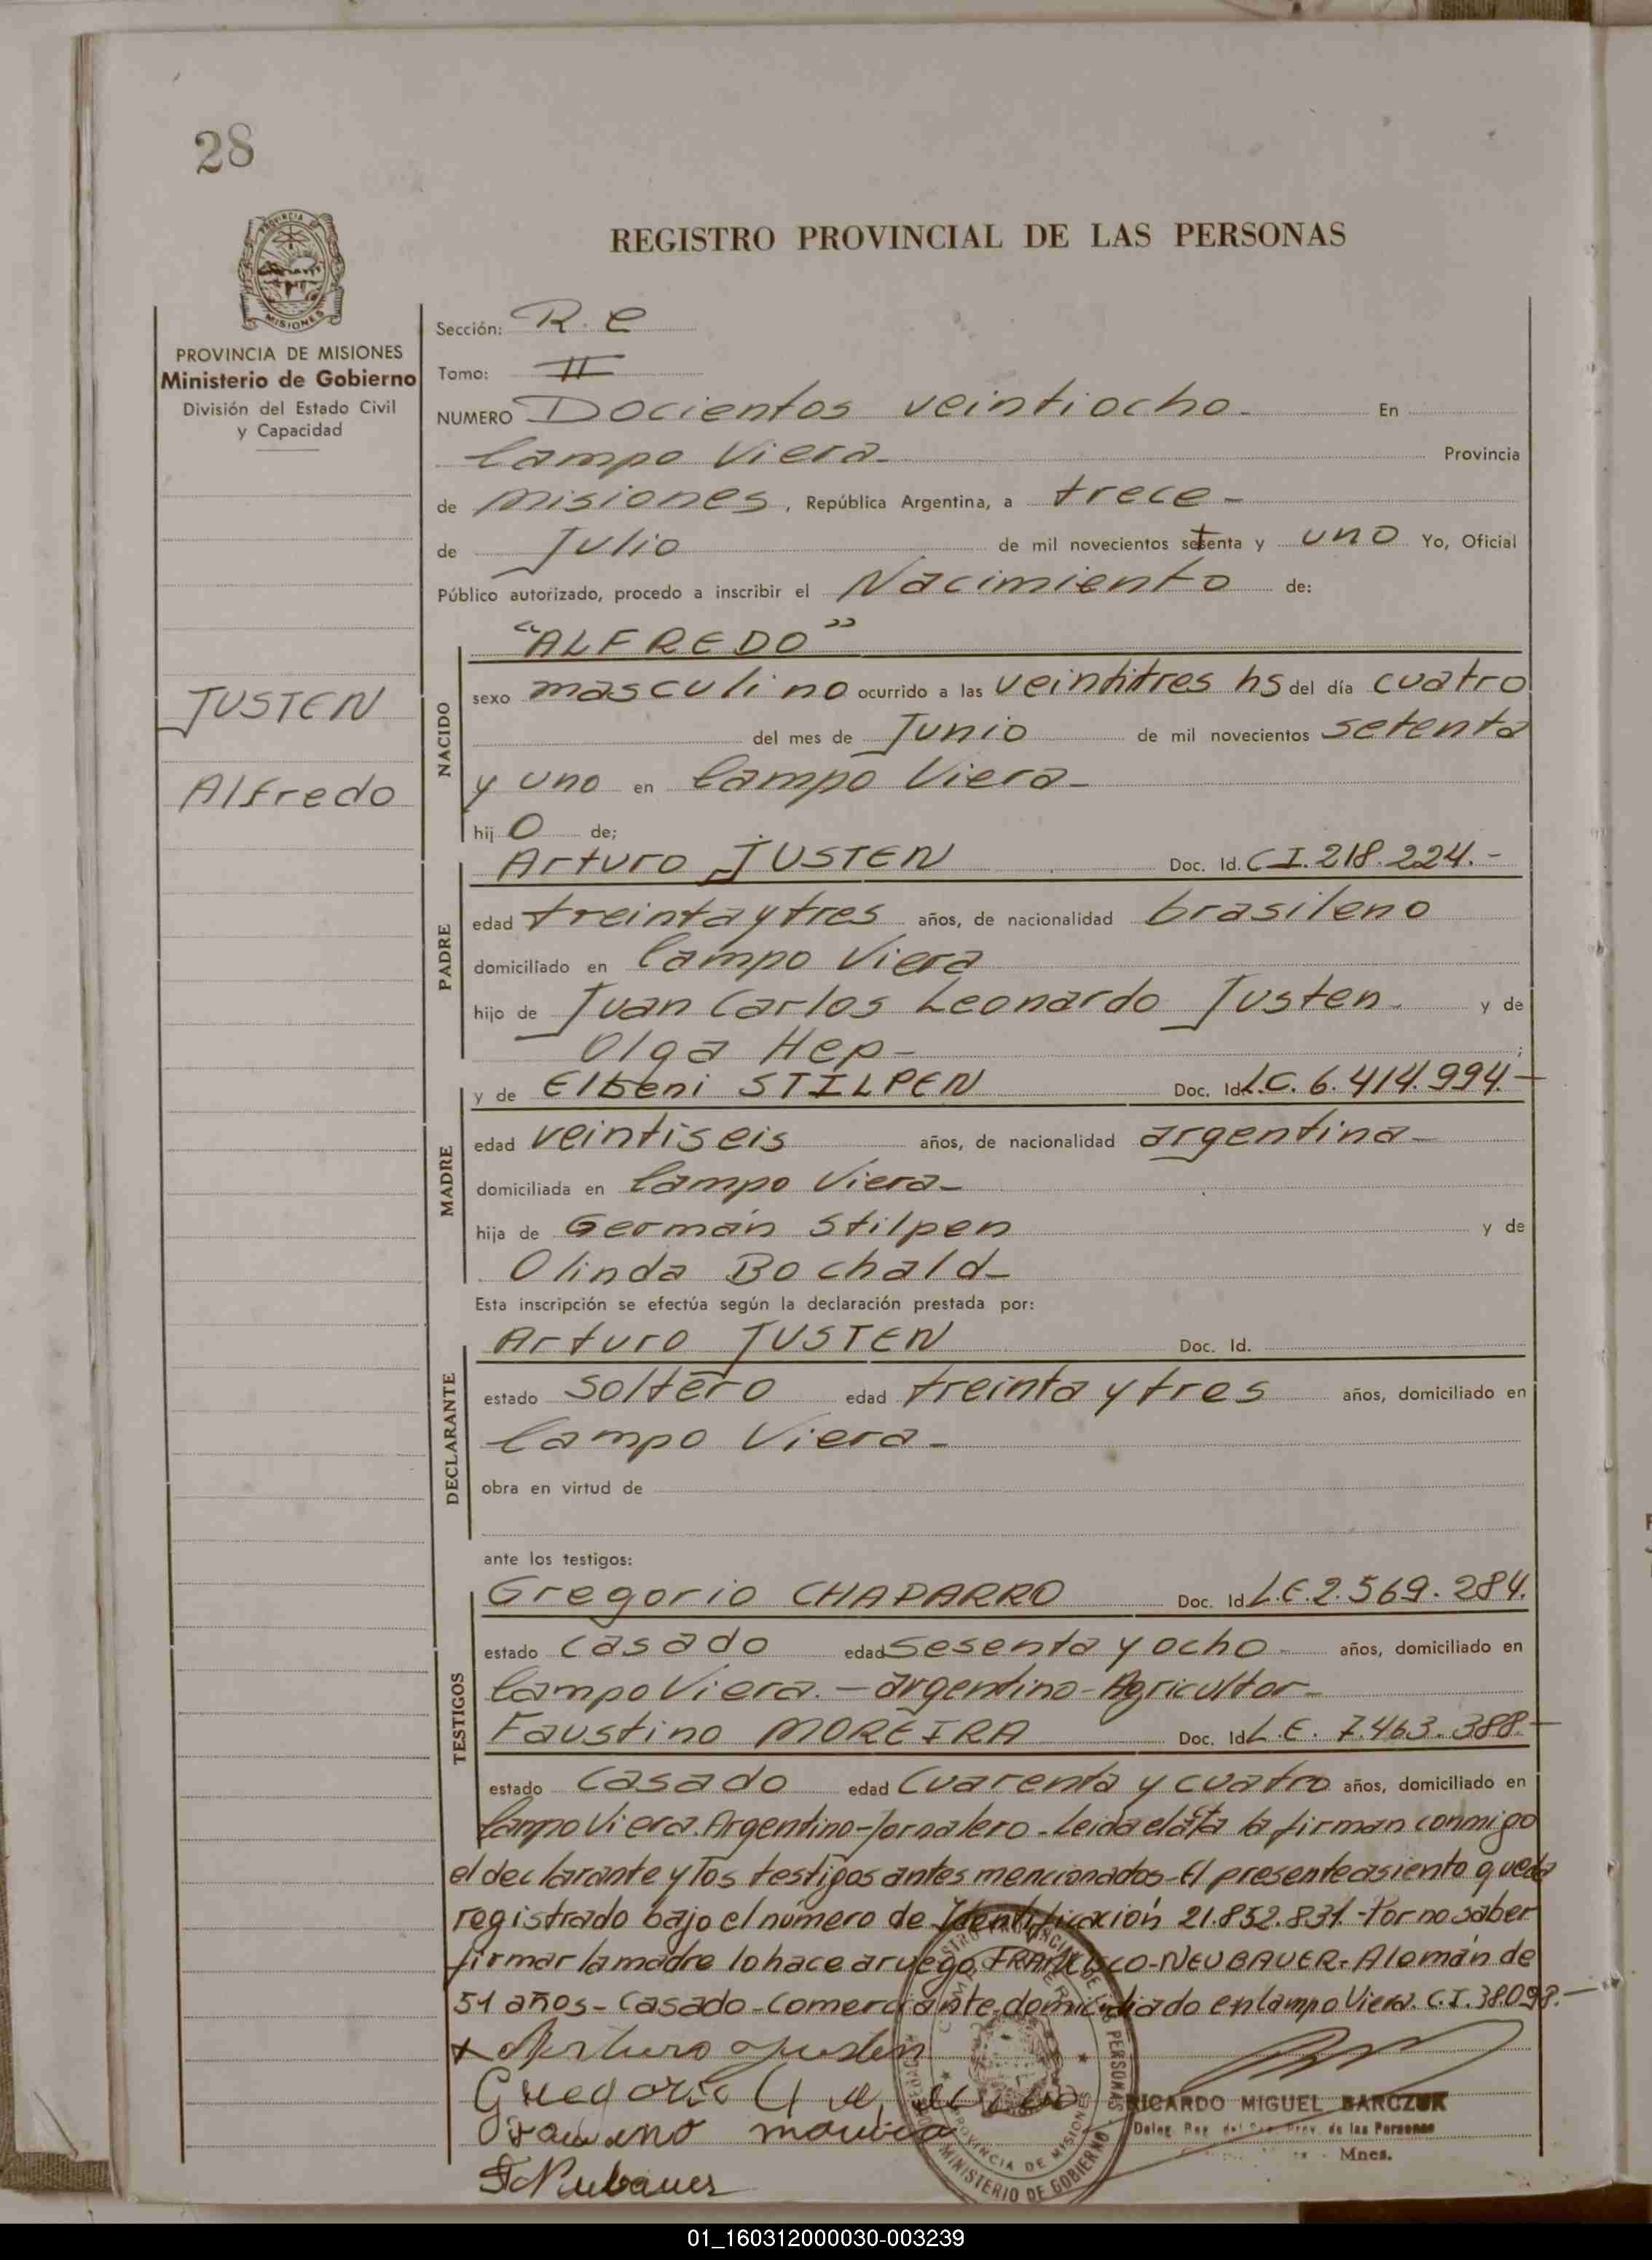 28
REGISTRO PROVINCIAL DE LAS PERSONAS
PROVINCIA
MISIONES
PROVINCIA DE MISIONES
Ministerio de Gobierno
División del Estado Civil
y Capacidad
JUSTEN
Alfredo
Sección: R. C
Tomo: II
NUMERO Docientos veintiocho- En
Campo Viera- Provincia
de Misiones, República Argentina, a trece-
de Julio de mil novecientos setenta y uno Yo, Oficial
Público autorizado, procedo a inscribir el Nacimiento de:
NACIDO
"ALFREDO"
sexo masculino ocurrido a las veintitres hs del día cuatro
del mes de Junio de mil novecientos setenta
y uno en Campo Viera-
hijo de;
PADRE
Arturo JUSTEN Doc. Id. C I. 218.224.-
edad treinta y tres años, de nacionalidad brasileno
domiciliado en Campo Viera
hijo de Juan Carlos Leonardo Justen. y de
Olga Hep- ;
MADRE
y de Elbeni STILPEN Doc. Id. L.C. 6.414.994.-
edad veintiseis años, de nacionalidad argentina-
domiciliada en Campo Viera-
hija de Germán Stilpen y de
Olinda Bochald-
Esta inscripción se efectúa según la declaración prestada por:
DECLARANTE
Arturo JUSTEN Doc. Id.
estado soltero edad treinta y tres años, domiciliado en
Campo Viera-
obra en virtud de
ante los testigos:
TESTIGOS
Gregorio CHAPARRO Doc. Id L.E. 2.569.284.
estado casado edad sesenta y ocho- años, domiciliado en
Campo Viera.- argentino- Agricultor-
Faustino MOREIRA Doc. Id L.E. 7.463.388.-
estado casado edad Cuarenta y cuatro años, domiciliado en
Campo Viera. Argentino-Jornalero- Leida el acta la firman conmigo
el declarante y los testigos antes mencionados- El presente asiento queda
registrado bajo el número de Identificación 21.852.831.- Por no saber
firmar la madre lo hace a ruego, FRANCISCO-NEUBAUER- Alemán de
51 años- casado-Comerciante-domiciliado en Campo Viera. C.I. 38.098.-
x Arturo Justen
Gregorio
Faustino
F Neubauer
PROVINCIA DE MISIONES
MINISTERIO DE GOBIERNO
RICARDO MIGUEL BARCZUK
Prov. de las Personas
Mnes.
01_160312000030-003239